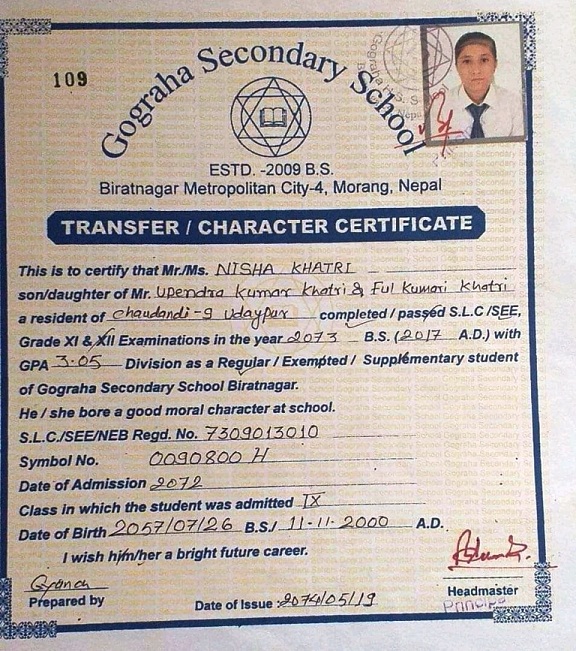 109
Gograha Secondary School
ESTD. -2009 B.S.
Biratnagar Metropolitan City-4, Morang, Nepal
TRANSFER / CHARACTER CERTIFICATE
This is to certify that Mr./Ms. NISHA KHATRI
son/daughter of Mr. Upendra Kumar Khatri & Ful Kumari Khatri
a resident of Chaudandi-9 Udaypur completed / passed S.L.C /SEE,
Grade XI & XII Examinations in the year 2073 B.S. (2017 A.D.) with
GPA 3.05 Division as a Regular / Exempted / Supplementary student
of Gograha Secondary School Biratnagar.
He / she bore a good moral character at school.
S.L.C./SEE/NEB Regd. No. 7309013010
Symbol No. 0090800 H
Date of Admission 2072
Class in which the student was admitted IX
Date of Birth 2057/07/26 B.S./ 11-11-2000 A.D.
I wish him/her a bright future career.
Prepared by
Date of Issue :2074/05/19
Headmaster
Principal